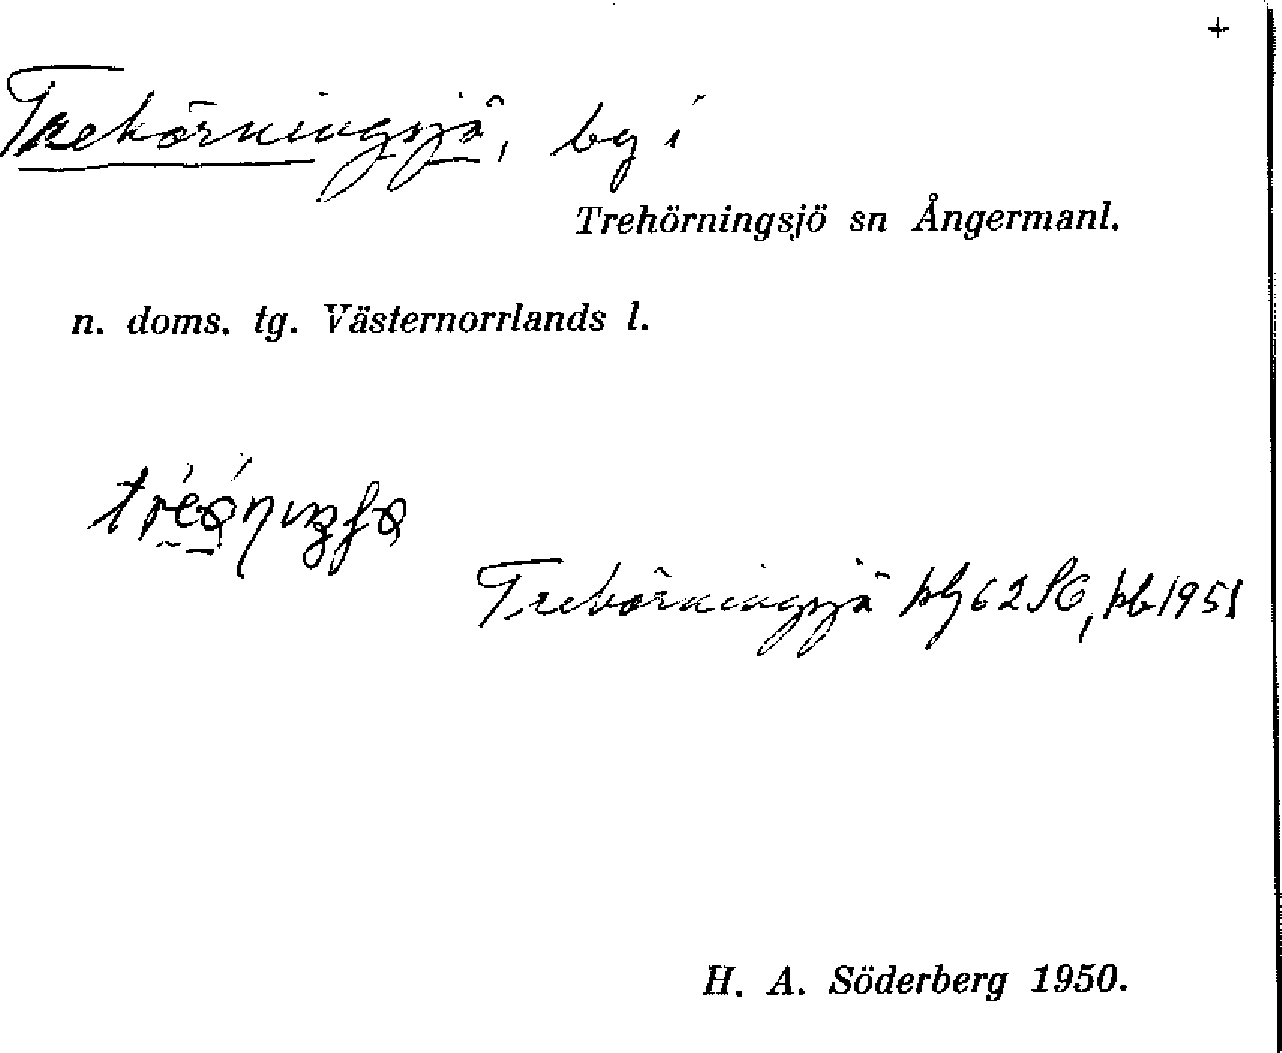 +
Trehörningsjö, by i
Trehörningsjö sn Ångermanl.
n. doms. tg. Västernorrlands l.
Trehörningsjö bl 62 SG, bb 1951
H. A. Söderberg 1950.